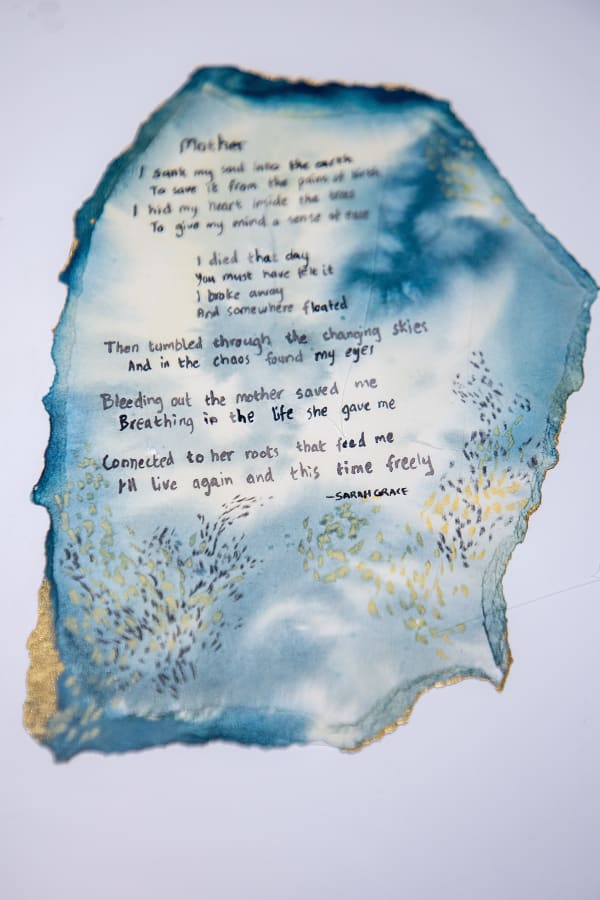 Mother
I sunk my soul into the earth
To save it from the pains of birth
I hid my heart inside the trees
To give my mind a sense of ease
I died that day
You must have felt it
I broke away
And somewhere floated
Then tumbled through the changing skies
And in the chaos found my eyes
Bleeding out the mother saved me
Breathing in the life she gave me
Connected to her roots that feed me
I'll live again and this time freely
-SARAH GRACE